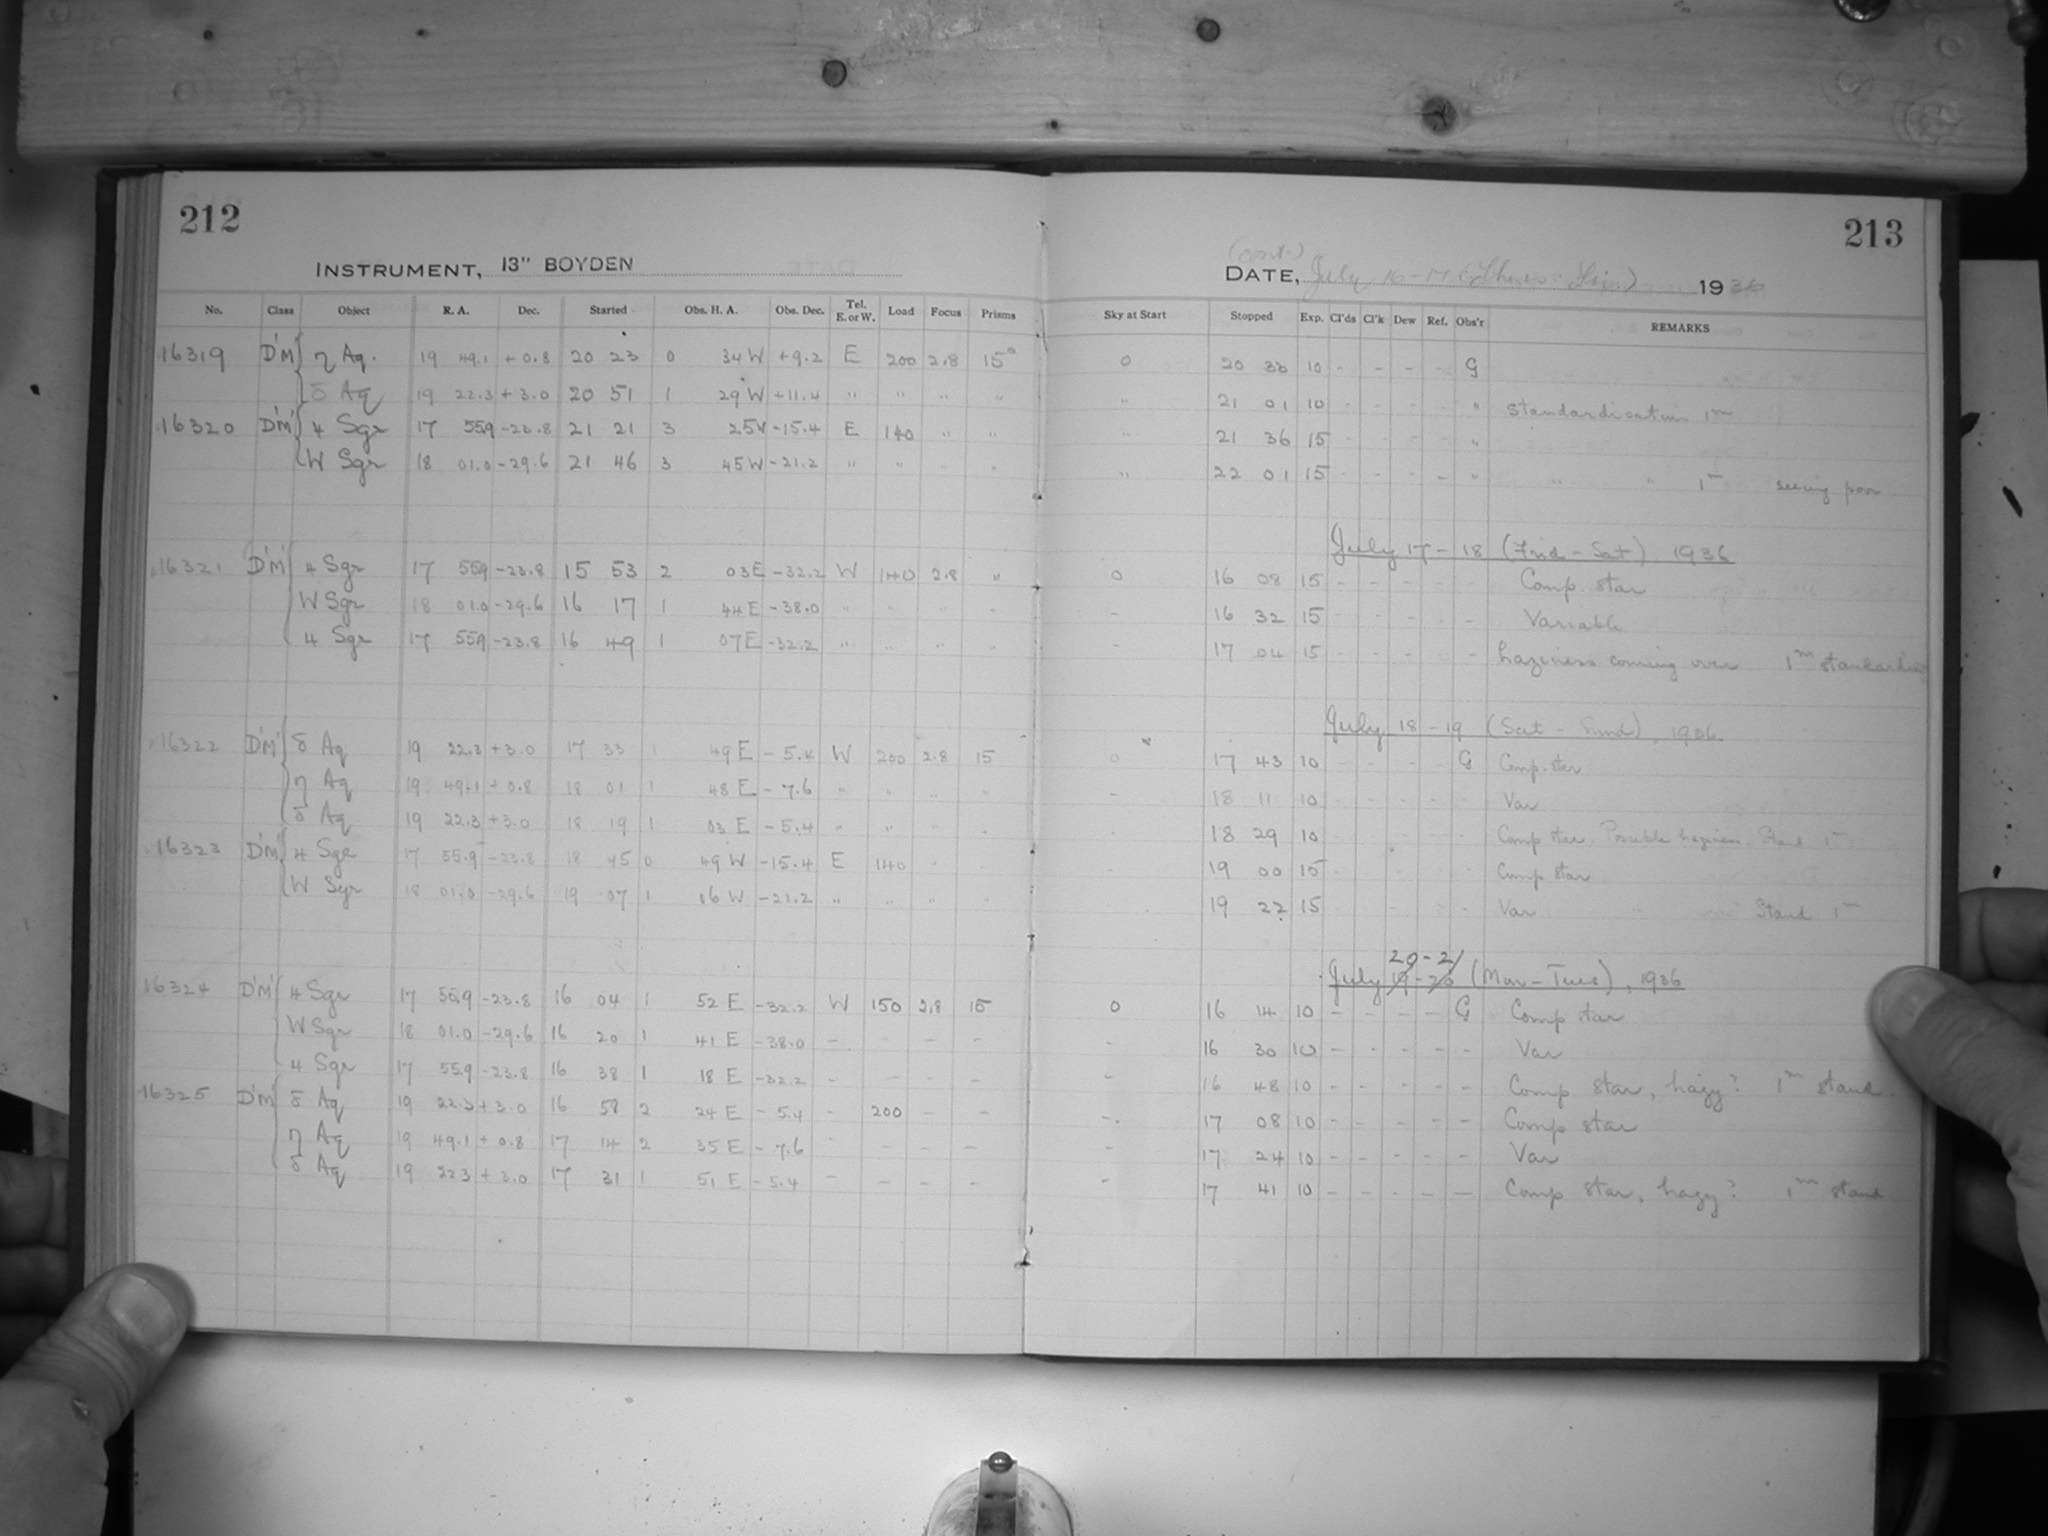 212
INSTRUMENT, 13" BOYDEN
No. Class Object R. A. Dec. Started Obs. H. A. Obs. Dec. Tel. E. or W. Load Focus Prisms
16319 D'M' η Aq. 19 49.1 +0.8 20 23 0 34 W +9.2 E 200 2.8 15°
δ Aq 19 22.3 +3.0 20 51 1 29 W +11.4 " " " "
16320 D'M' 4 Sgr 17 55.9 -23.8 21 21 3 25 W -15.4 E 140 " "
W Sgr 18 01.0 -29.6 21 46 3 45 W -21.2 " " " "
16321 D'M' 4 Sgr 17 55.9 -23.8 15 53 2 03 E -32.2 W 140 2.8 "
W Sgr 18 01.0 -29.6 16 17 1 44 E -38.0 " " " "
4 Sgr 17 55.9 -23.8 16 49 1 07 E -32.2 " " " "
16322 D'M' δ Aq 19 22.3 +3.0 17 33 1 49 E -5.4 W 200 2.8 15
η Aq 19 49.1 +0.8 18 01 1 48 E -7.6 " " " "
δ Aq 19 22.3 +3.0 18 19 1 03 E -5.4 " " - -
16323 D'M' 4 Sgr 17 55.9 -23.8 18 45 0 49 W -15.4 E 140 - -
W Sgr 18 01.0 -29.6 19 07 1 06 W -21.2 " " " "
16324 D'M' 4 Sgr 17 55.9 -23.8 16 04 1 52 E -32.2 W 150 2.8 15
W Sgr 18 01.0 -29.6 16 20 1 41 E -38.0 - - - -
4 Sgr 17 55.9 -23.8 16 38 1 18 E -32.2 - - - -
16325 D'M' δ Aq 19 22.3 +3.0 16 58 2 24 E -5.4 - 200 - -
η Aq 19 49.1 +0.8 17 14 2 35 E -7.6 - - - -
δ Aq 19 22.3 +3.0 17 31 1 51 E -5.4 - - - -
213
(cont.)
DATE, July 16-17 (Thurs-Fri) 1936
Sky at Start Stopped Exp. Cl'ds Cl'k Dew Ref. Obs'r REMARKS
0 20 33 10 - - - - G
" 21 01 10 - - - - " Standardisation 1m
" 21 36 15 - - - - "
" 22 01 15 - - - - " " " 1m seeing poor
July 17-18 (Frid-Sat), 1936
0 16 08 15 - - - - - Comp. star
- 16 32 15 - - - - - Variable
- 17 04 15 - - - - - haziness coming over 1m
July 18-19 (Sat-Sund), 1936
0 17 43 10 - - - - G Comp. star
- 18 11 10 - - - - - Var
- 18 29 10 - - - - - Comp star. Possible haziness. Stand 1m
- 19 00 15 - - - - - Comp star
19 22 15 - - - - - Var Stand 1m
20-21
July 19-20 (Mon-Tues), 1936
0 16 14 10 - - - - G Comp star
- 16 30 10 - - - - - Var
- 16 48 10 - - - - - Comp star, hazy? 1m stand.
- 17 08 10 - - - - - Comp star
- 17 24 10 - - - - - Var
- 17 41 10 - - - - - Comp star, hazy? 1m stand